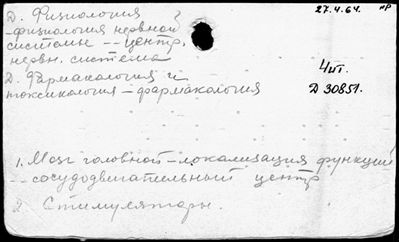 Д. Физиология
27.4.64.
-физиология нервной
системы -- Центр.
нервн. система
Д. Фармакология и
4шт.
токсикология - фармакология
Д 30851.
1. Мозг головной - локализация функций
- сосудодвигательный центр
2. Стимуляторы.